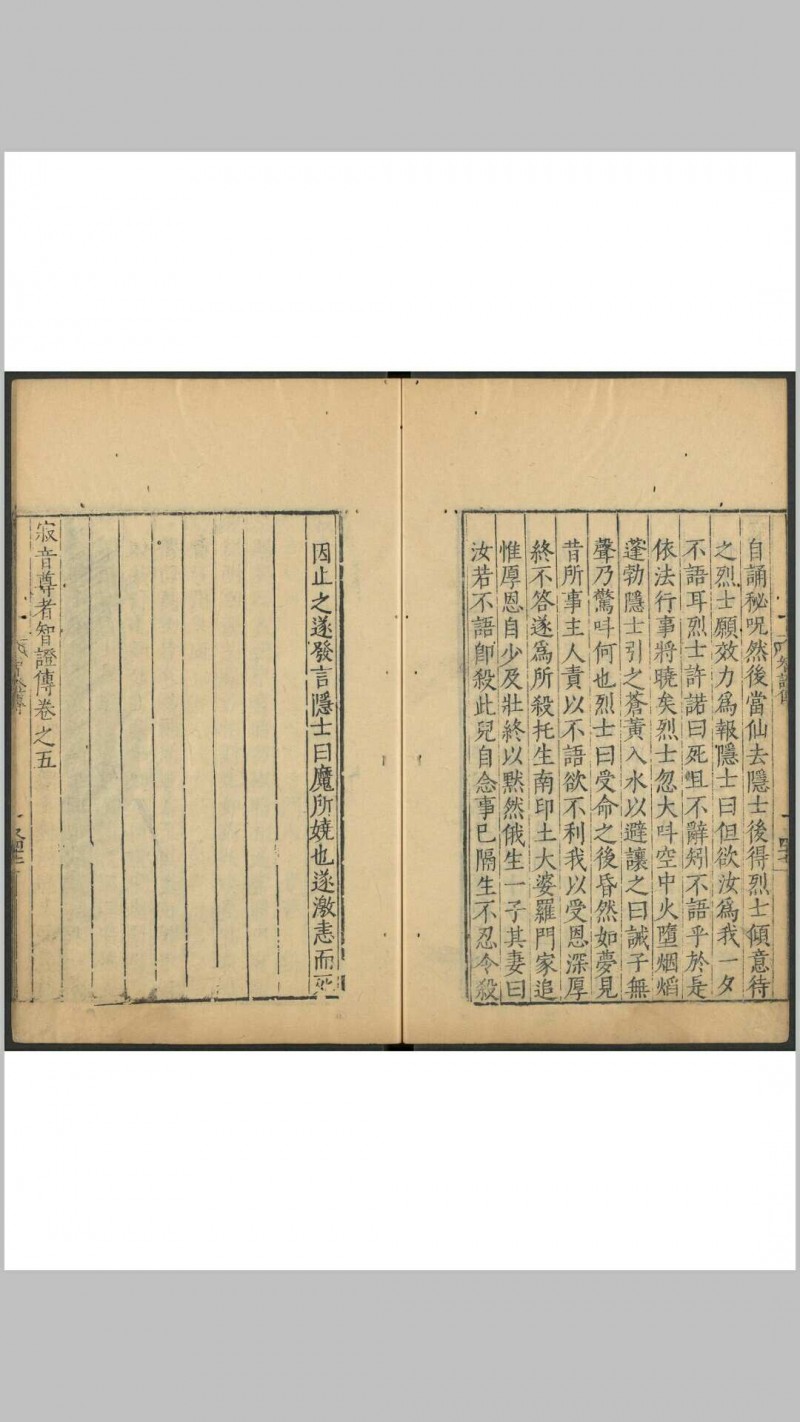 自誦秘呪然後當仙去隱士後得烈士傾意待
之烈士願效力爲報隱士曰但欲汝爲我一夕
不語耳烈士許諾曰死且不辭矧不語乎於是
依法行事將曉矣烈士忽大呌空中火墮烟熖
蓬勃隱士引之蒼黃入水以避讓之曰誡子無
聲乃驚呌何也烈士曰受命之後昏然如夢見
昔所事主人責以不語欲不利我以受恩深厚
終不答遂爲所殺托生南印土大婆羅門家追
惟厚恩自少及壯終以默然俄生一子其妻曰
汝若不語卽殺此兒自念事已隔生不忍令殺
因止之遂發言隱士曰魔所嬈也遂激恚而死
寂音尊者智證傳卷之五